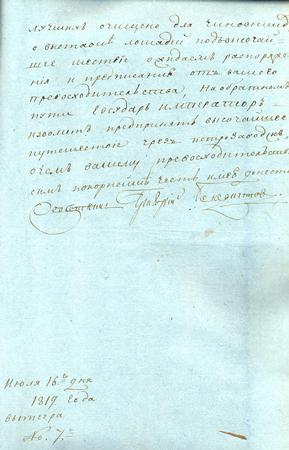 лучшимъ очищено для чиновниковъ
о выставке лошадей подъ высочай
шее шествіе ожидаемъ распоряже
нія и предписанія отъ вашего
превосходительства, На обратномъ
пути Государь императоръ
изволитъ предпринять высочайшее
путешествіе чрезъ петрозаводскъ,
о чемъ вашему превосходительству
симъ покорнейше честь имею донести
Июля 16го дня
1819 года
вытегра
№. 7.